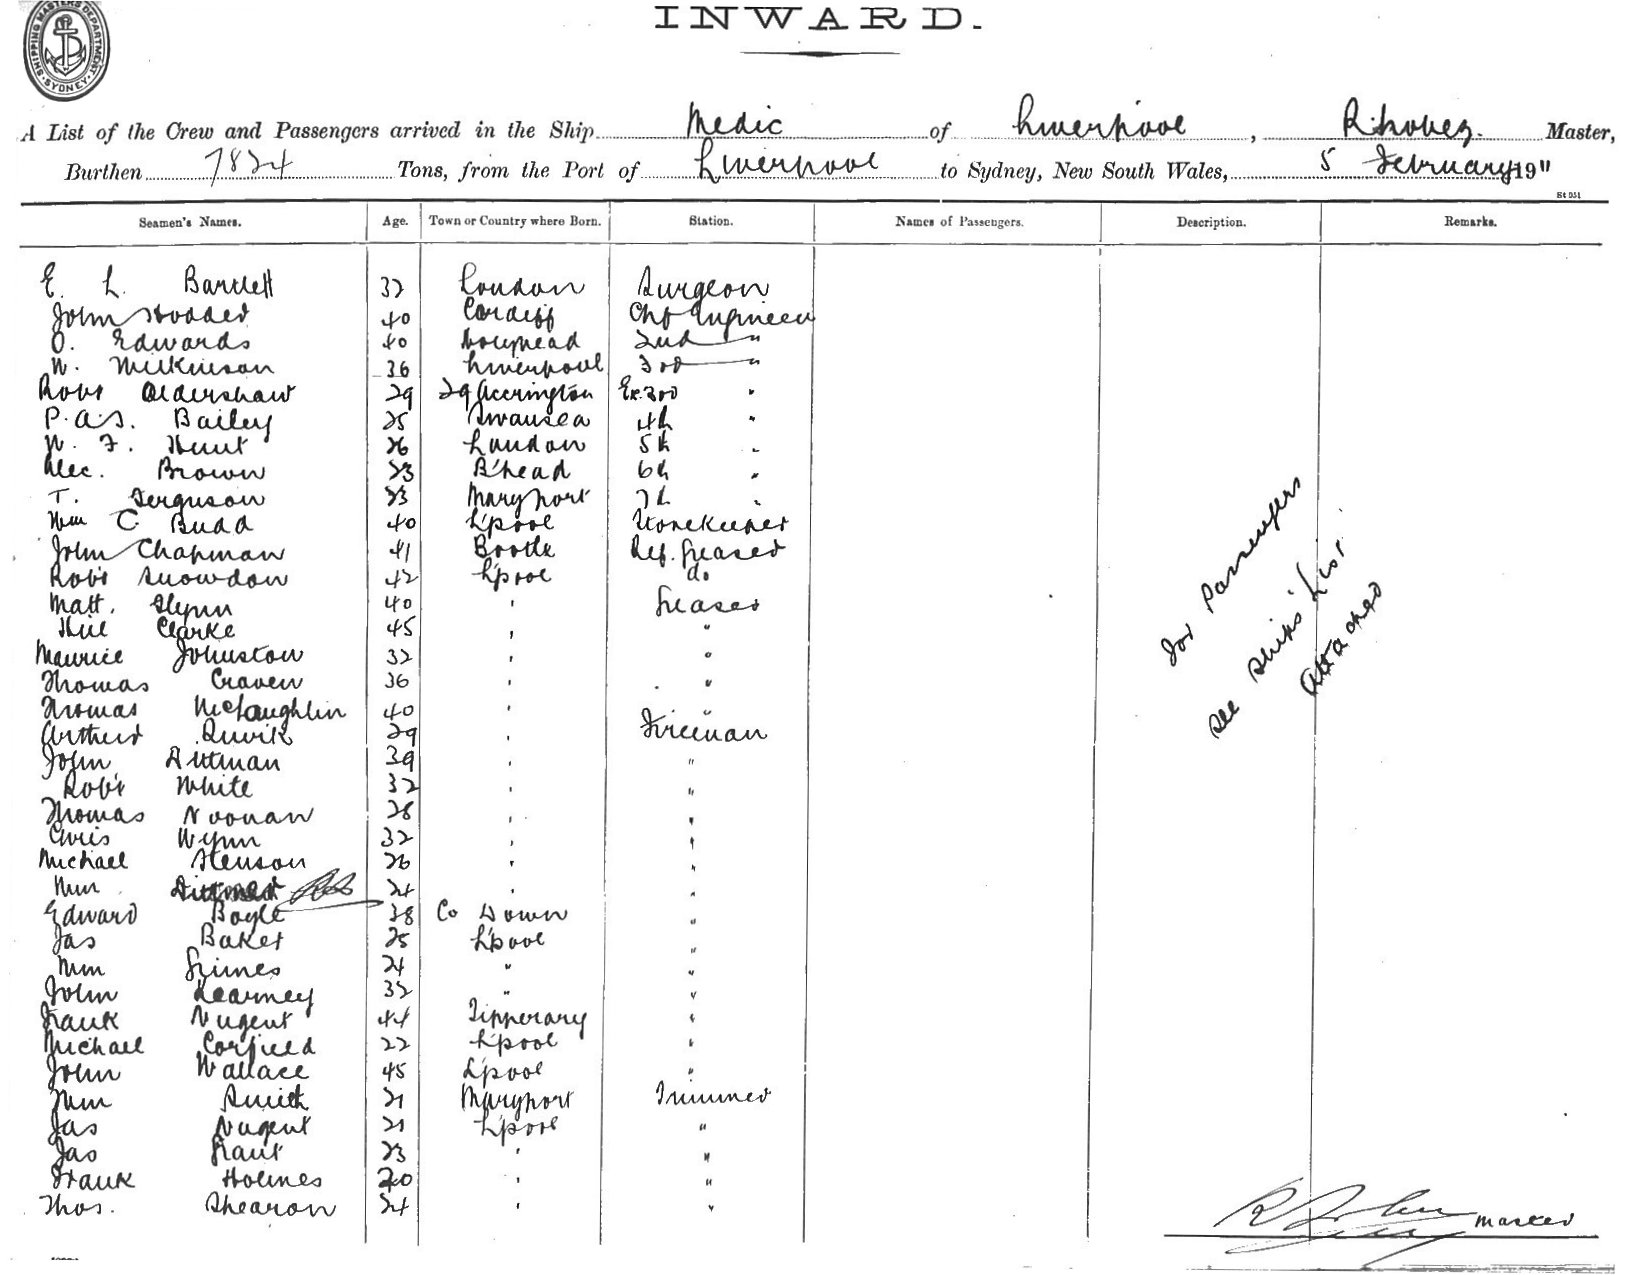 SHIPPING MASTERS DEPARTMENT · SYDNEY ·
INWARD.
A List of the Crew and Passengers arrived in the Ship Medic of Liverpool, Master,
Burthen 7824 Tons, from the Port of Liverpool to Sydney, New South Wales, 5 February 1911
St 051
Seamen's Names. Age. Town or Country where Born. Station. Names of Passengers. Description. Remarks.
E. L. Bartlett 32 London Surgeon
John Hodder 40 Cardiff Chf Engineer
O. Edwards 40 Holyhead 2nd "
W. Wilkinson 36 Liverpool 3rd "
Robt Aldershaw 29 29 Accrington Ex. 3rd "
P. A. S. Bailey 25 Swansea 4th "
W. F. Hunt 26 London 5th "
Alec. Brown 23 B'head 6th "
T. Ferguson 23 Maryport 7th "
Wm C Budd 40 L'pool Storekeeper
John Chapman 41 Bootle Ref. Greaser
Robt Snowdon 42 L'pool do
Matt. Glynn 40 " Greaser
Clarke 45 " "
Maurice Johnston 32 " "
Thomas Craven 36 " "
Thomas McLaughlin 40 " "
Arthur Quirk 29 " Fireman
John Dittman 39 " "
Robt White 32 " "
Thomas Noonan 28 " "
Chris Wynn 32 " "
Michael Henson 26 " "
Wm 24 " "
Edward Boyle 38 Co Down "
Jas Baker 25 L'pool "
Wm Grimes 24 " "
John Kearney 32 " "
Frank Nugent 44 Tipperary "
Michael Corfield 22 L'pool "
John Wallace 45 L'pool "
Wm Smith 21 Maryport Trimmer
Jas Nugent 21 L'pool "
Jas Grant 23 " "
Frank Holmes 20 " "
Thos. Shearon 24 " "
For Passengers
see Ships' List
Attached
Master